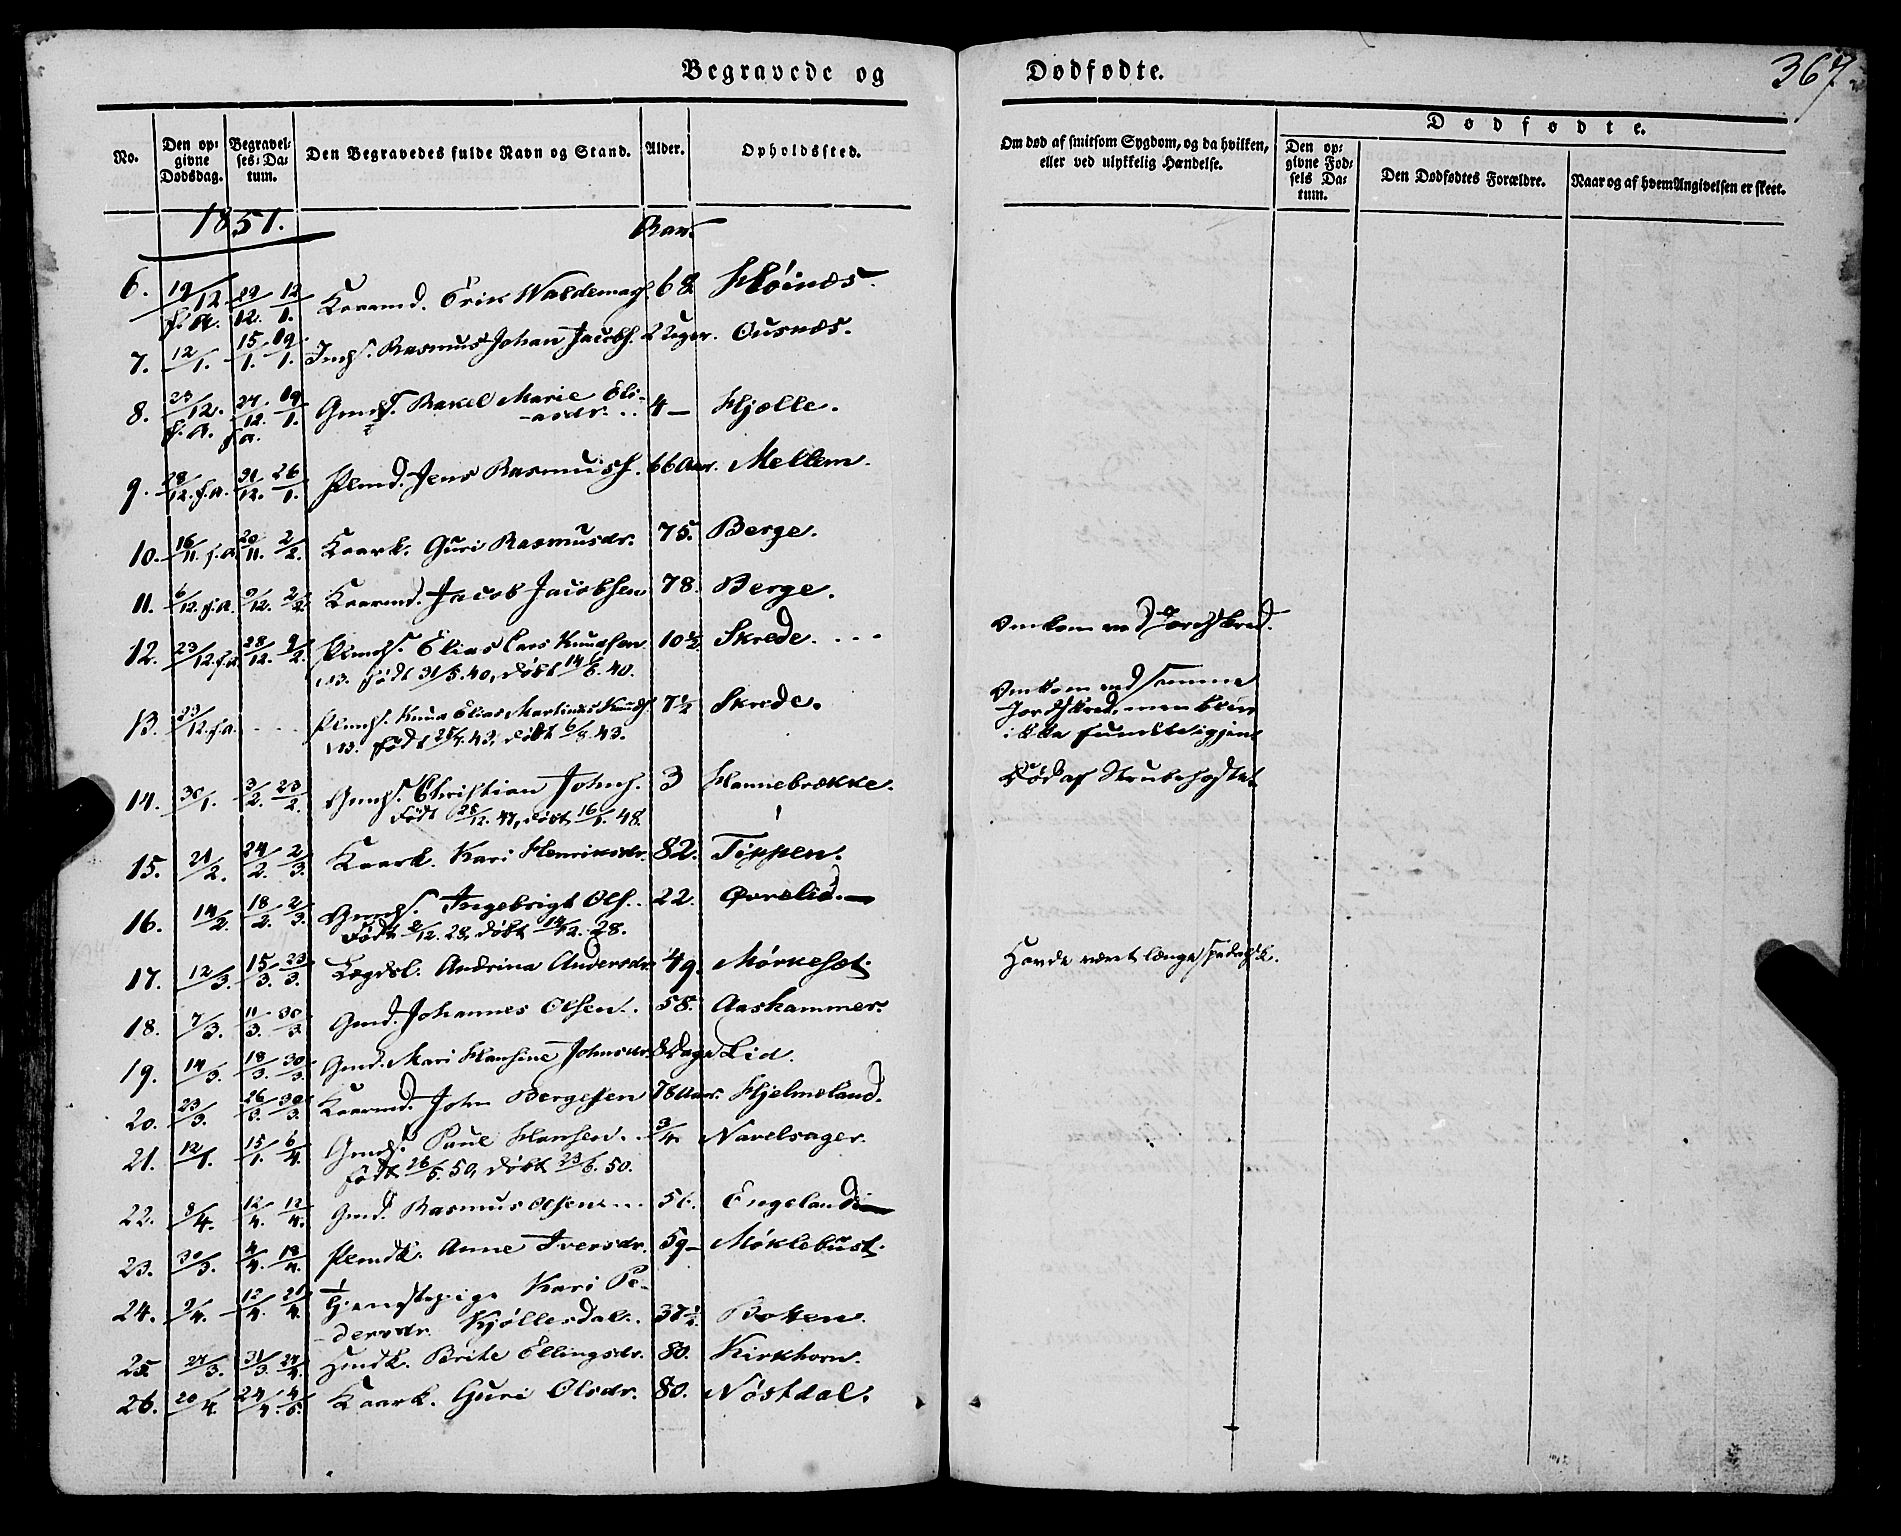 Begravede og Dødfødte.
367.
No. Den opgivne Dødsdag. Begravelses-Datum. Den Begravedes fulde Navn og Stand. Alder. Opholdssted.
Om død af smitsom Sygdom, og da hvilken, eller ved ulykkelig Hændelse.
Dødfødte.
Den opgivne Fødsels Datum. Den Dødfødtes Forældre. Naar og af hvem Angivelsen er skeet.
1851. Aar.
6. 19/12 f.A. 29/12. 12/1. Kaarmd. Erik Waldemarss. 68 Høinæs.
7. 12/1. 15/1. 19/1. Rasmus Johan Jacobs. 2 Uger. Ousnæs.
8. 23/12. f.A. 27/12. f.a. 19/1. Gmds. Rakel Marie Eli-
asdr. 4 — Hjelle.
9. 28/12. f.a. 31/12. 26/1. Plmd. Jens Rasmuss. 66 Aar. Mellem.
10. 16/11. f.a. 20/11. 2/2. Kaark. Guri Rasmusdr. 75. Berge.
11. 6/12. f.a. 9/12. 2/2. Kaarmd. Jacob Jacobsen 78. Berge.
12. 23/12. f.a. 28/12. 9/2. Plmds. Elias Lars Knudsen 10½ Skrede. Omkom ved Jordskred.
NB. Født 31/5. 40, døbt 14/6. 40.
13. 23/12. f.a. Plmds. Knud Elias Martinus Knuds. 7½ Skrede. Omkom ved samme
Jordskred, men blev
ikke funden igjen
NB. Født 43, døbt 6/8. 43.
14. 30/1. 3/2. 23/2. Gmds. Christian Johns. 3 Hannebrække. Død af Strubehoste
Født 28/12. 47, døbt 16/1. 48.
15. 21/2. 24/2. 2/3. Kaark. Kari Henriksdr. 82. Tippen.
16. 14/2. 18/2. 2/3. Gmds. Ingebrigt Ols. 22. Øvrelid.
Født 2/12. 28, døbt 14/12. 28.
17. 12/3. 15/3. 23/3. Lægdsl. Andrina Andersdr. 49. Mørkeset. Havde været længe spedalsk.
18. 7/3. 11/3. 30/3. Gmd. Johannes Olsen. 58. Aaskammer.
19. 14/3. 18/3. 30/3. Gmd. Mari Hansine Johnsdr. 8 Dage Lid.
20. 23/3. 26/3. 30/3. Kaarmd. John Bergesen 76 Aar. Hjelmeland.
21. 12/1. 15/1. 6/4. Gmds. Paul Hansen. 3/4. Navelsager.
Født 26/5. 50, døbt 23/6. 50.
22. 8/4. 12/4. 12/4. Gmd. Rasmus Olsen 51. Engeland
23. 30/3. 4/4. 18/4. Plmdk. Anne Iversdr. 59 — Møklebust.
24. 9/4. 12/4. 21/4. Tjenstepige Kari Pe-
dersdr. Kjøllesdal. 37½ Boten.
25. 27/3. 31/3. 27/4. Hmdk. Brite Ellingsdr. 80. Kirkhorn.
26. 20/4. 24/4. 4/5. Kaark. Guri Olsdr. 80. Nøstdal.